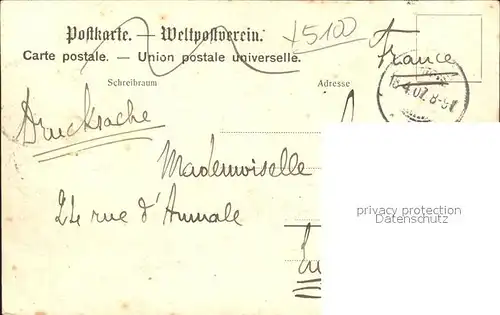 Postkarte. — Weltpostverein.
x5100
Carte postale. — Union postale universelle.
France
Schreibraum
Adresse
18.4.07. 8-9
Drucksache
Mademoiselle
24 rue d'Aumale
privacy protection
Datenschutz